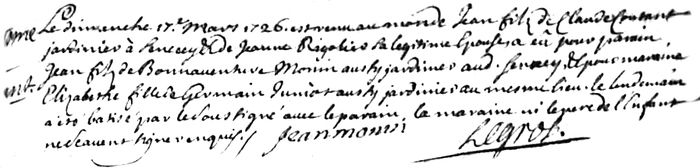 Le dimanche 17e. Mars 1726. est venu au monde Jean filz de Claude Coutant
jardinier à Senecey & de Jeanne Rigolier sa legitime Epouse a eü pour parain
Jean filz de Bonnaventure Monin aussy jardinier aud. Senecey & pour maraine
Elizabethe fille de Germain Juniot aussy jardinier au mesme lieu. le lendemain
a été batisé par le soustigné avec le parain, la maraine ni le pere de l'enfant
ne scavent signer enquis. / Jean monin Legros.